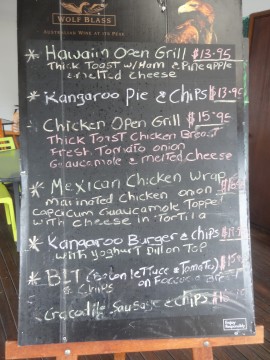 WOLF BLASS
AUSTRALIAN WINE AT ITS PEAK
* Hawaiin Open Grill $13.95
Thick Toast w/Ham & Pineapple
& melted cheese
* Kangaroo Pie & Chips $13.95
Chicken Open Grill $15.95
Thick Toast Chicken Breast
Fresh Tomato onion
Guaucamole & melted cheese
* Mexican Chicken Wrap
Marinated Chicken onion
capcicum Guaucamole Topped
with cheese in Tortilla
* Kangaroo Burger & chips
with Yoghurt Dill on Top
* BLT (Bacon lettuce & Tomato)
& Chips on Bread
Crocodile Sausage & Chips
Enjoy
Responsibly